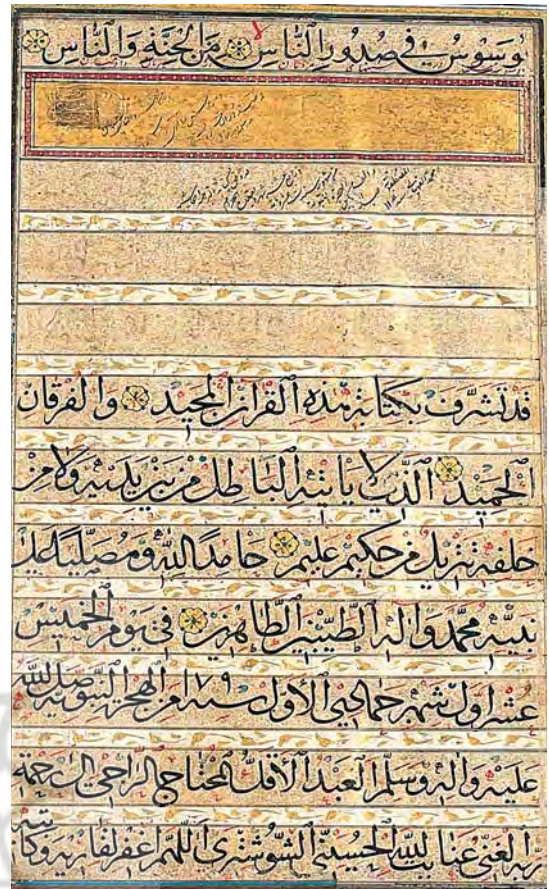 يوسوس في صدور الناس من الجنة والناس
قد تشرف بكتابة هذه القرآن المجيد والفرقان
الحميد الذي لا يأتيه الباطل من بين يديه ولا من
خلفه تنزيل من حكيم عليم حامدا لله ومصليا على
نبيه محمد وآله الطيبين الطاهرين في يوم الخميس
عشر اول شهر جمادي الأول سنه ١٧٩ من الهجرة النبوية صلى الله
عليه وآله وسلم العبد الأقل المحتاج الراجي الى رحمة
ربه الغني عنايت الله الحسيني الشوشتري اللهم اغفر لقاريه وكاتبه